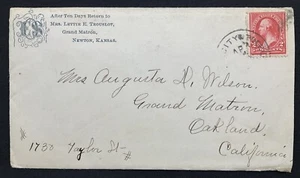 After Ten Days Return to
Mrs. Lettie H. Trouslot,
Grand Matron,
Newton, Kansas.
Mrs Augusta D. Wilson,
Grand Matron,
Oakland,
California
1730 Taylor St